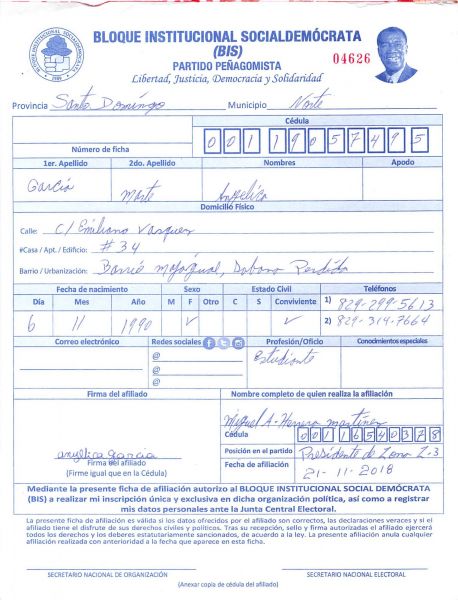 BLOQUE INSTITUCIONAL SOCIALDEMÓCRATA
(BIS)
PARTIDO PEÑAGOMISTA
04626
Libertad, Justicia, Democracia y Solidaridad
Provincia Santo Domingo Municipio Norte
Cédula
Número de ficha 00119057495
1er. Apellido 2do. Apellido Nombres Apodo
García Marte Angélica
Domicilio Físico
Calle: C/ Emiliano Vasquez
#Casa / Apt. / Edificio: #34
Barrio / Urbanización: Barrio Majagual, Sabana Perdida
Fecha de nacimiento Sexo Estado Civil Teléfonos
Día Mes Año M F Otro C S Conviviente 1) 829-299-5613
6 11 1990 ✓ ✓ 2) 829-314-7664
Correo electrónico Redes sociales Profesión/Oficio Conocimientos especiales
@ Estudiante
@
@
Firma del afiliado Nombre completo de quien realiza la afiliación
Miguel A. Herrera Martinez
Cédula
00116540378
angelica garcia
Firma del afiliado
(Firme igual que en la Cédula)
Posición en el partido Presidente de Zona Z-3
Fecha de afiliación 21-11-2018
Mediante la presente ficha de afiliación autorizo al BLOQUE INSTITUCIONAL SOCIAL DEMÓCRATA
(BIS) a realizar mi inscripción única y exclusiva en dicha organización política, así como a registrar
mis datos personales ante la Junta Central Electoral.
La presente ficha de afiliación es válida si los datos ofrecidos por el afiliado son correctos, las declaraciones veraces y si el
afiliado tiene el disfrute de sus derechos civiles y políticos. Tras su recepción, sello y firma autorizadas el afiliado ejercerá
todos los derechos y los deberes estatutariamente sancionados, de acuerdo a la ley. La presente afiliación anula cualquier
afiliación realizada con anterioridad a la fecha que aparece en esta ficha.
SECRETARIO NACIONAL DE ORGANIZACIÓN SECRETARIO NACIONAL ELECTORAL
(Anexar copia de cédula del afiliado)